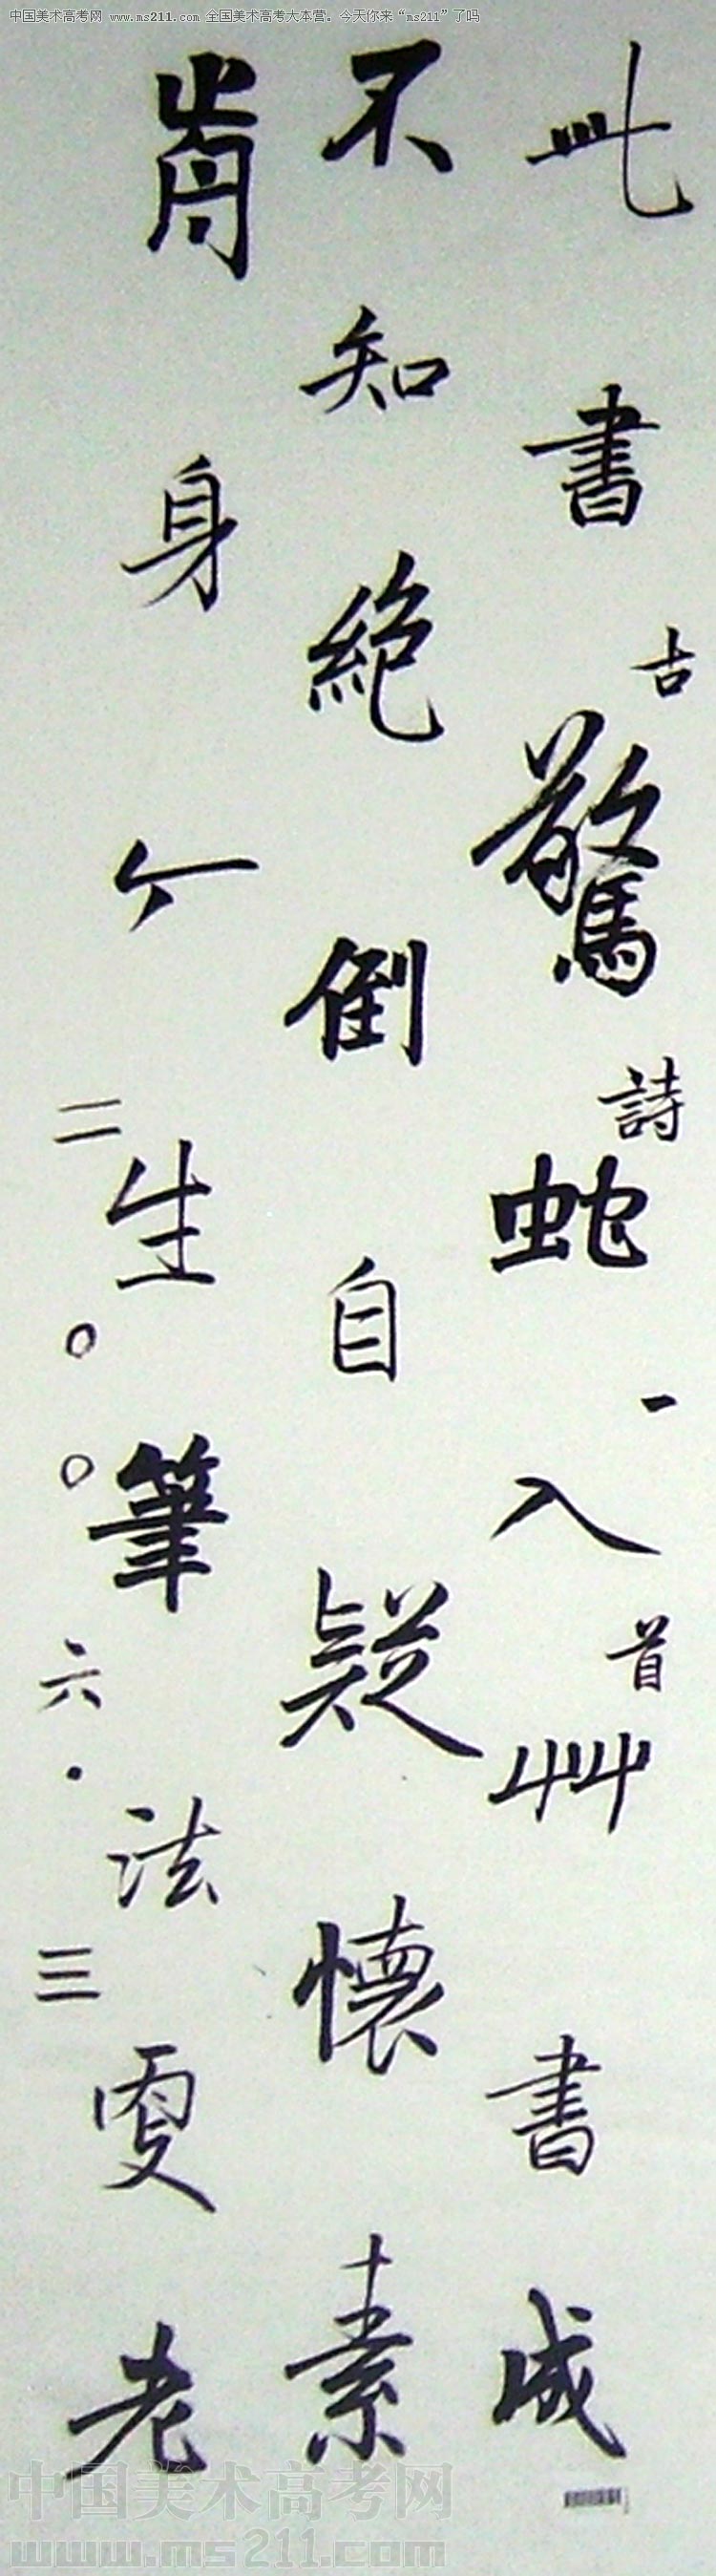 中国美术高考网 www.ms211.com 全国美术高考大本营。今天你来“ms211”了吗
此書驚蛇入艸書成
古詩一首
不知絕倒自疑懷素
前身今生筆法更老
二〇〇六·三
中国美术高考网
www.ms211.com